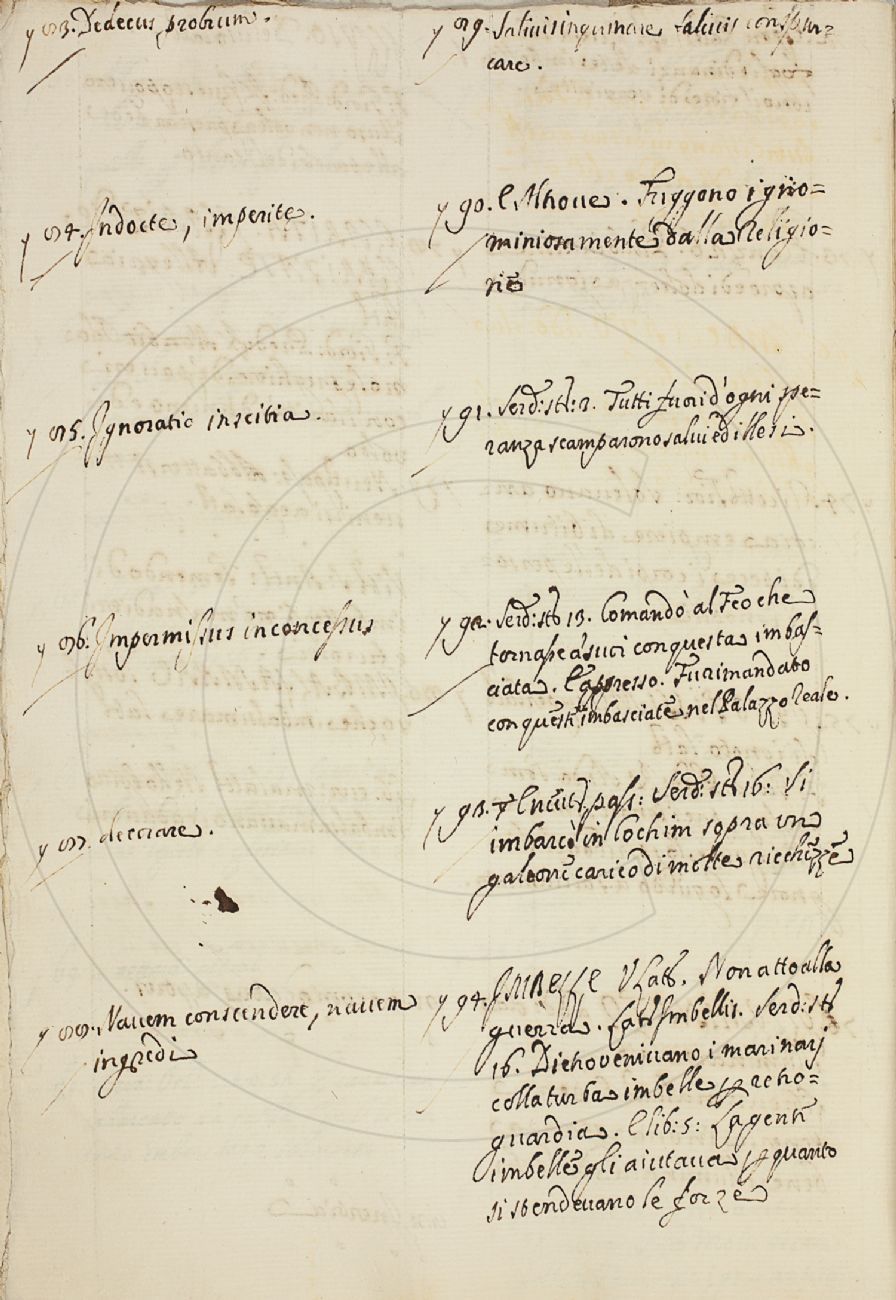 y 83. Dedecus, probrum.
y 84. Indocte, imperite.
y 85. Ignoratio inscitia.
y 86. Impermissus inconcessus
y 87.
y 88. Navem conscendere, navem
ingredi
y 89. Salivis inquinare salivis conspur=
care.
y 90. E Altrove. Fuggono igno=
miniosamente dalla Religio=
ne
y 91. Serd: sto: 2. Tutti fuori d'ogni spe=
ranza scamparono salvi ed illesi.
y 92. Serd: sto 13. Comandò al Feo che
tornasse a' suoi con questa imbas=
ciata. E appresso. Fu rimandato
con queste imbasciate nel Palazzo Reale.
y 93. pass: Serd: sto 16: Si
imbarcò in Cochim sopra un
galeone carico di molte ricchezze
y 94. IMBELLE Non atto alla
guerra. Lat. Imbellis. Serd: sto
16. Dietro venivano i marinarj
colla turba imbelle p retro=
guardia. E lib: 5: La gente
imbelle gli aiutava p quanto
si stendevano le forze